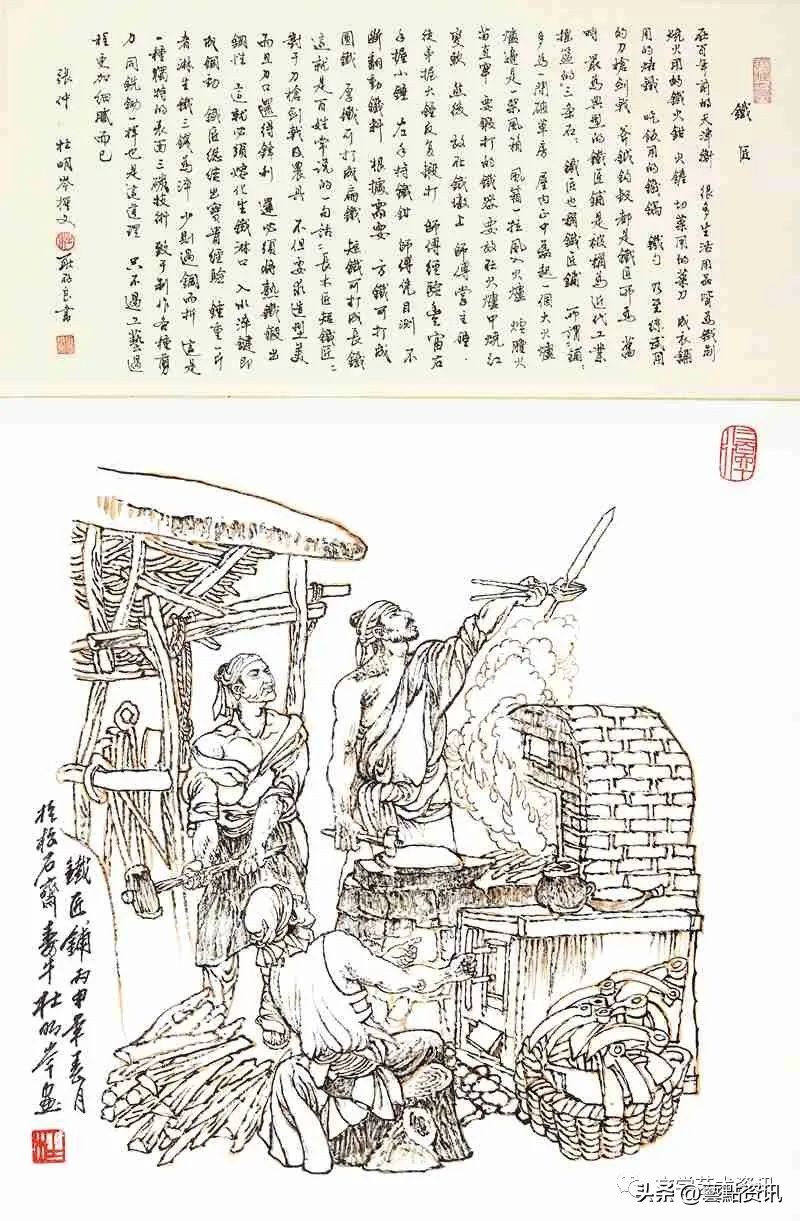 鐵匠
在百年前的天津衛 很多生活用品皆為鐵制
燒火用的鐵火鉗 火筷 切菜用的菜刀 成衣鋪
用的烙鐵 吃飯用的鐵鍋 鐵勺 乃至練武用
的刀槍劍戟 斧鉞鈎叉都是鐵匠所為 舊
時 最為典型的鐵匠鋪是被稱為近代工業
搖籃的三条石 鐵匠也稱鐵匠鋪 所謂“鋪”
多為一間破草房 屋内正中為起一個大火爐
爐邊是一架風箱 風箱一拉風入火爐 煙騰火
苗直竄 要鍛打的鐵器要放在火爐中燒紅
變軟 然後 放在鐵墩上 師傅掌主錘
徒弟握大錘反復鍛打 師傅經驗豐富右
手握小錘 左手持鐵鉗 師傅憑目測 不
斷翻動鐵料 根據需要 方鐵可打成
圓鐵 厚鐵可打成扁鐵 短鐵可打成長鐵
這就是百姓常說的一句話:長木匠短鐵匠
對于刀槍劍戟及農具 不但要求造型美
而且刀口還得鋒利 還必須將熟鐵鍛出
鋼性 這就必須熔化生鐵淋口 入水淬鍵即
成鋼刃 鐵匠總結出寶貴經驗 錘重一斤
者淋生鐵三錢為淬 少則過鋼而折 這是
一種獨特的表面三碳技術 致于制作各種剪
刀同銑鋤一樣也是這道理 只不過工藝過
程更加細膩而已
張仲 杜明岑撰文 良書
鐵匠鋪 丙申年春月
石齋 杜明岑画
头条@藝點资讯